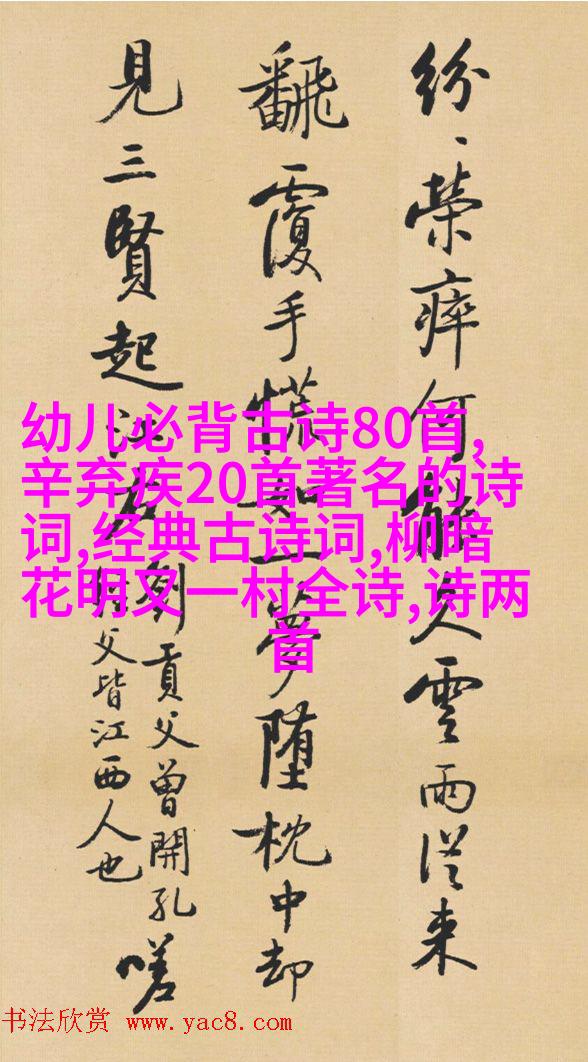 紛々榮瘁何能久雲雨從来
飜覆手慌如一夢墮枕中却
見三賢起江右
劉貢父曾開孔
經父皆江西人也
嗟
幼儿必背古诗80首,
辛弃疾20首著名的诗
词,经典古诗词,柳暗
花明又一村全诗,诗两
首
书法欣赏 www.yac8.com